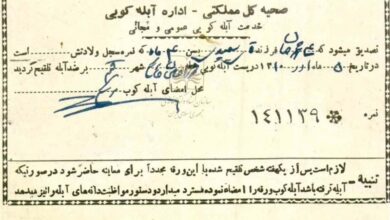 صحیه کل مملکتی - اداره آبله کوبی
خدمت آبله کوبی عمومی و مجانی
تصدیق میشود که فرزند بسن ۴ ماه که نمره سجل ولادتش است
در تاریخ ۵ ماه ۱۳۱۰ درپست آبله کوبی شهر برضدآبله تلقیح گردید
محل امضای آبله کوب
نمره ۱۴۱۱۳۹
تنبیه - لازم است پس از یکهفته شخص تلقیح شده با این ورقه مجدداً برای معاینه حاضر شود درصورتیکه
آبله گرفته باشد آبله کوب ورقه را امضاء نموده مسترد میدارد و دستور مواظبت دانه های آبله را نیز میدهد